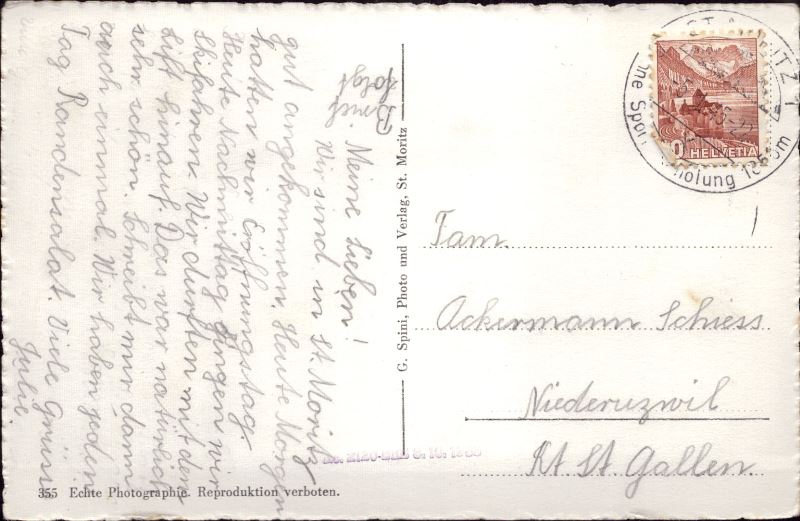 Meine Lieben!
Wir sind in St. Moritz
gut angekommen. Heute Morgen
hatten wir Eröffnungstag.
Heute Nachmittag gingen wir
Skifahren. Wir durften mit dem
Lift hinauf. Das war natürlich
sehr schön. Schreibt mir dann
auch einmal. Wir haben jeden
Tag Randensalat. Viele Grüsse
Julie.
Brief
folgt
G. Spini, Photo und Verlag, St. Moritz
355 Echte Photographie. Reproduktion verboten.
HELVETIA
10
holung 1856 m
Fam.
Ackermann Schiess
Niederuzwil
Kt St. Gallen.